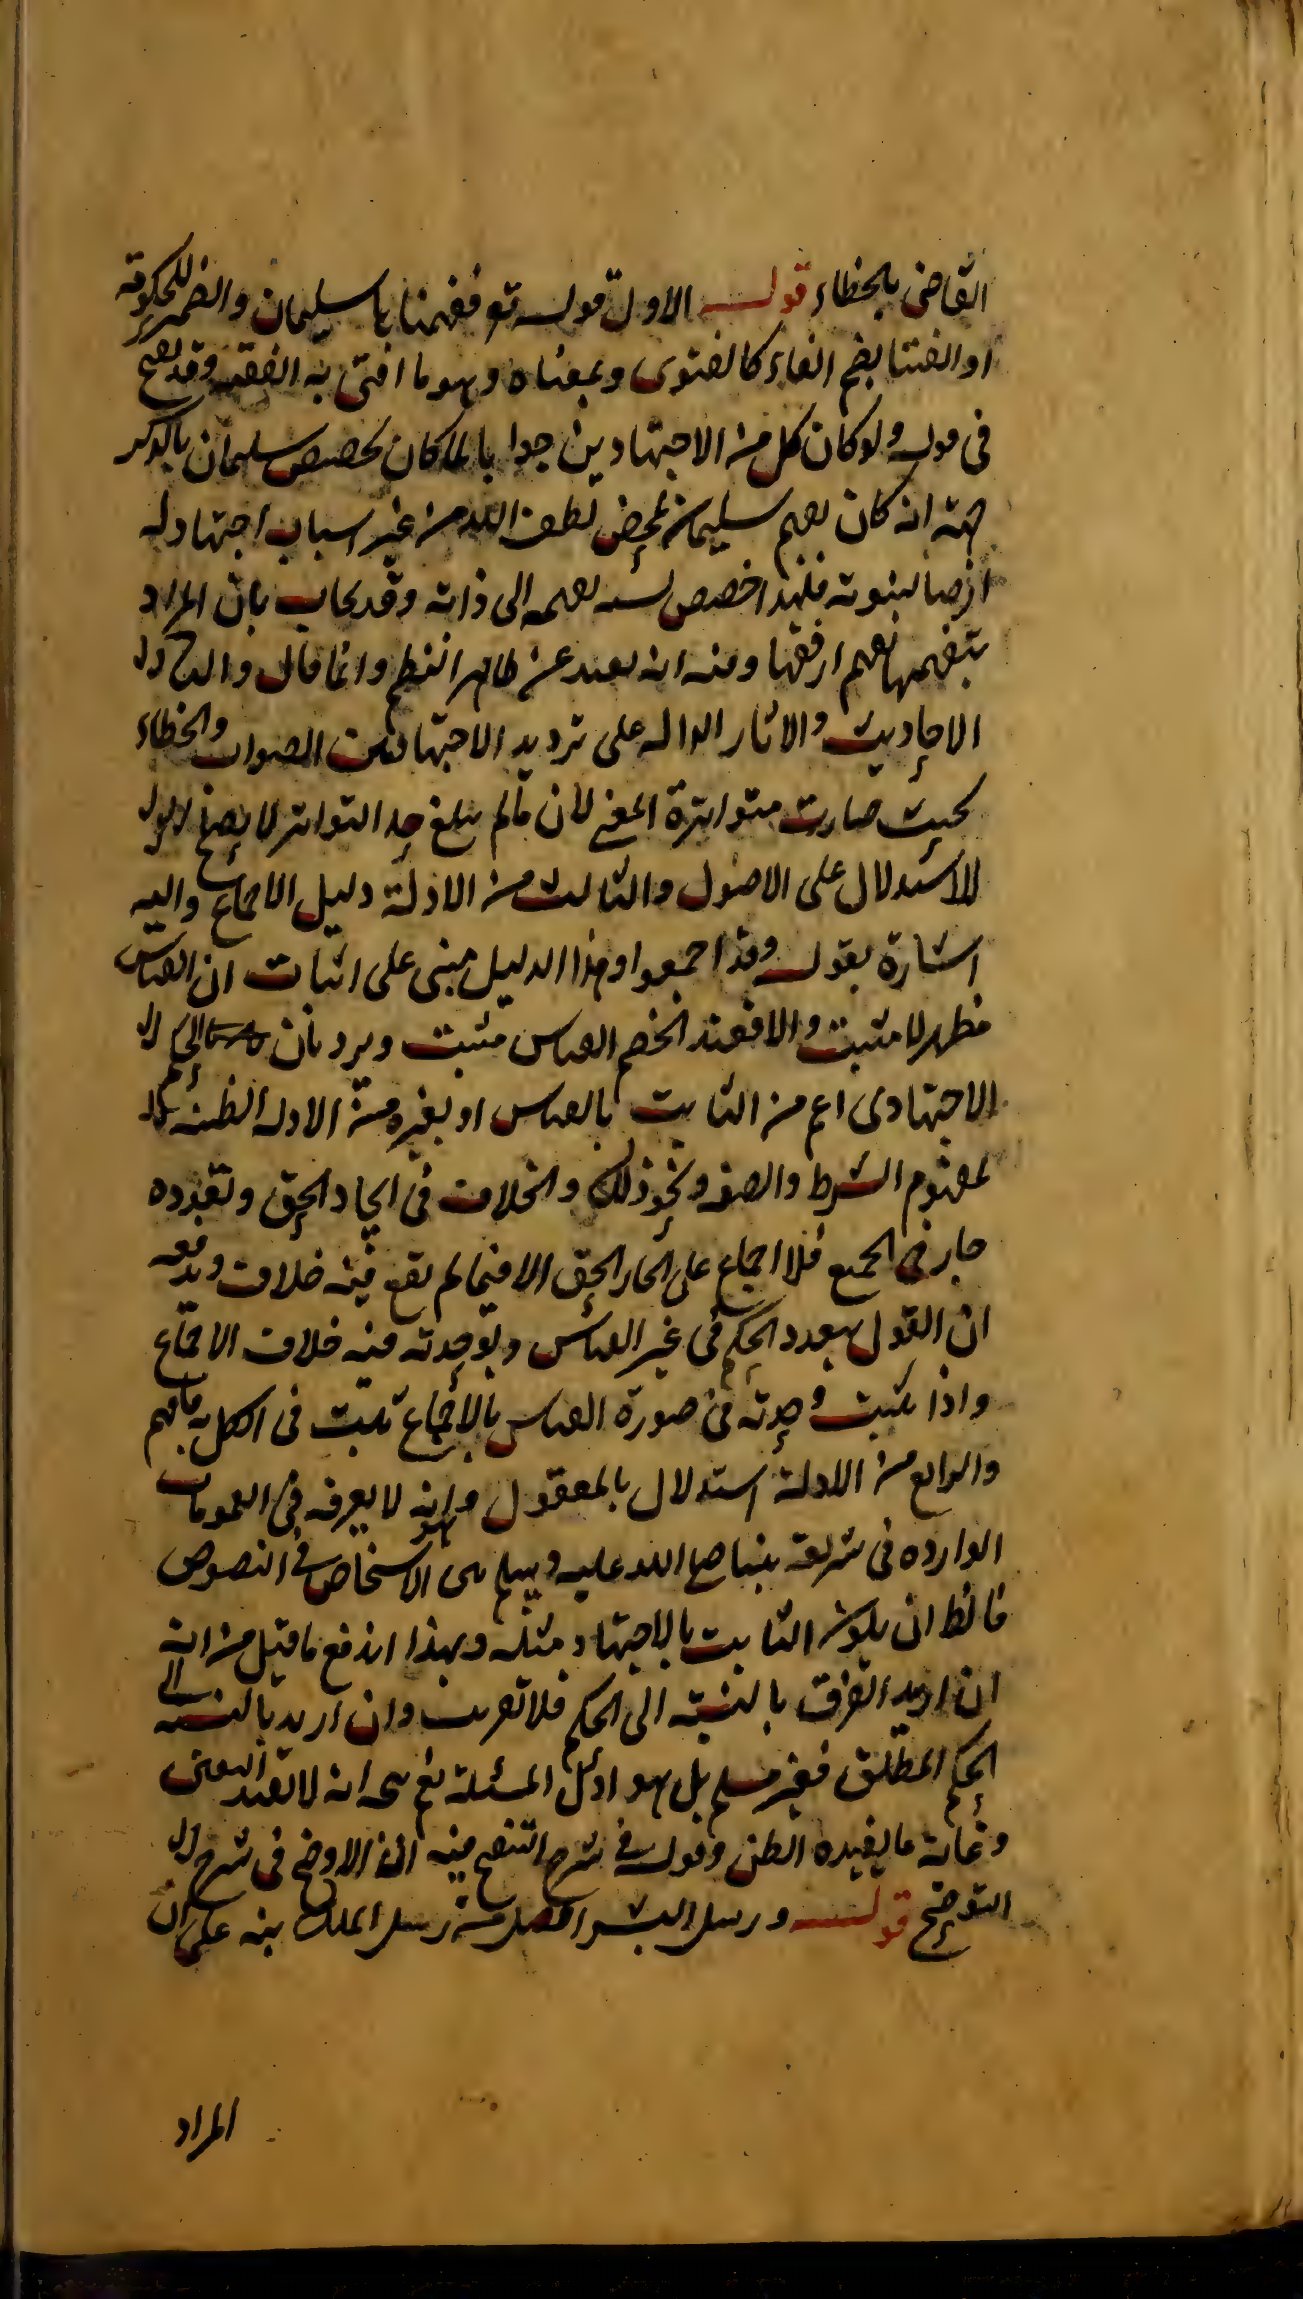 القاضى بالخطاء قوله الاول قوله تع ففهمناها سليمان والضمير للحكومة
او الفتيا بضم الفاء كالفتوى وبمعناه وهو ما افتى به الفقيه وقد
فى قوله ولو كان كل من الاجتهادين حقا لما كان لتخصيص سليمان بالذكر
جهة انه كان تفهيم سليمان لمحض لطف الله من غير اسباب اجتهاد له
فلهذا خصص تفهيمه الى ذاته وقد يجاب بان المراد
بتفهيمها تفهيم ارفقها وفيه انه بعيد عن ظاهر النظم وانما قال والثانى
الاحاديث والاثار الدالة على ترديد الاجتهاد بين الصواب والخطاء
بحيث صارت متواترة المعنى لان مالم يبلغ حد التواتر لا يصلح
للاستدلال على الاصول والثالث من الادلة دليل الاجماع واليه
اشارة بقوله وقد اجمعوا وهذا الدليل مبنى على اثبات ان القياس
مظهر لا مثبت والا فعند الخصم القياس مثبت ويرد بان الحكم
الاجتهادى اعم من الثابت بالقياس او بغيره من الادلة الظنية
لمفهوم الشرط والصفة ونحو ذلك والخلاف فى اتحاد الحق وتعدده
جار فى الجميع فلا اجماع على اتحاد الحق الا فيما لم يقع فيه خلاف ويدفعه
ان القول بتعدد الحكم فى غير القياس وبوحدته فيه خلاف الاجماع
واذا ثبت وحدته فى صورة القياس بالاجماع ثبت فى الكل به فافهم
والرابع من الادلة استدلال بالمعقول وهو انه لا تفرقة فى العمومات
الواردة فى شريعة نبينا صلى الله عليه وسلم بين الاشخاص فى النصوص
فالظ ان يكون الثابت بالاجتهاد مثله وبهذا اندفع ما قيل من انه
ان اريد التفرق بالنسبة الى الحكم فلا تقريب وان اريد بالنسبة الى
الحكم المطلق فغير مسلم بل هو اول المسئلة نعم انه لا يفيد اليقين
وغاية ما يفيده الظن وقوله فى شرح التنقيح فيه ان الاوضح فى شرح
التوضيح قوله ورسل البشر افضل من رسل الملك نبه على ان
المراد